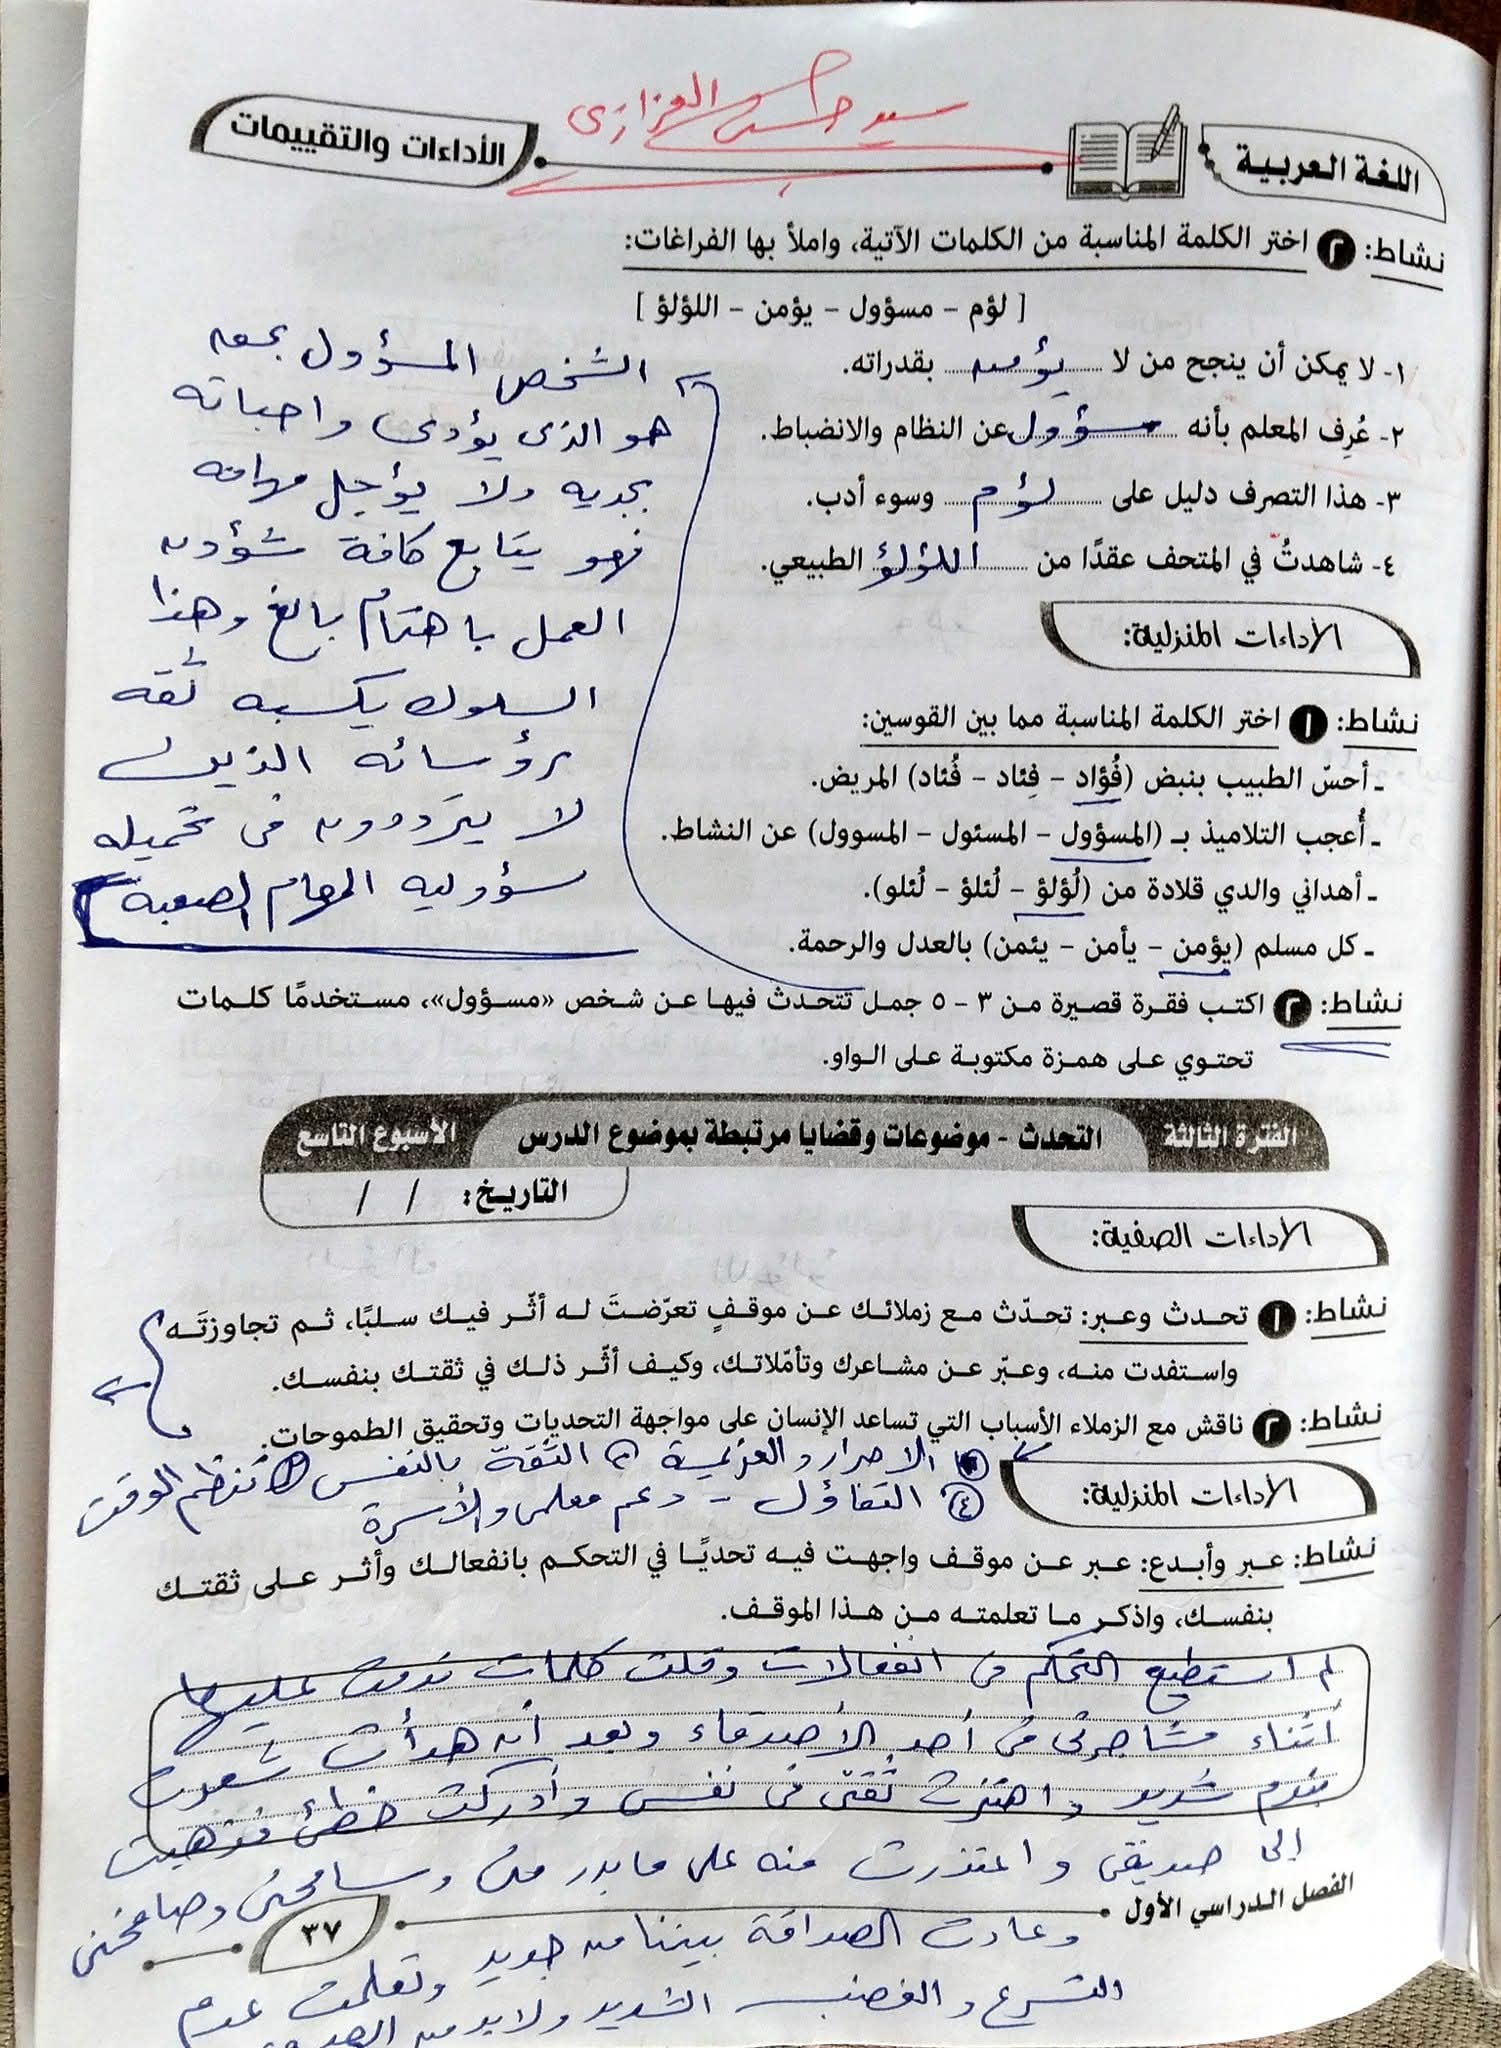 سيد حسن الفزازى
اللغة العربية
الأداءات والتقييمات
نشاط: ٢ اختر الكلمة المناسبة من الكلمات الآتية، واملأ بها الفراغات:
[ لؤم – مسؤول – يؤمن – اللؤلؤ ]
١- لا يمكن أن ينجح من لا يؤمن بقدراته.
٢- عُرِف المعلم بأنه مسؤول عن النظام والانضباط.
٣- هذا التصرف دليل على لؤم وسوء أدب.
٤- شاهدتُ في المتحف عقدًا من اللؤلؤ الطبيعي.
الأداءات المنزلية:
نشاط: ١ اختر الكلمة المناسبة مما بين القوسين:
ـ أحسّ الطبيب بنبض (فُؤاد – فِئاد – فُئاد) المريض.
ـ أُعجب التلاميذ بـ (المسؤول – المسئول – المسوول) عن النشاط.
ـ أهداني والدي قلادة من (لُؤلؤ – لُئلؤ – لُئلو).
ـ كل مسلم (يؤمن – يأمن – يئمن) بالعدل والرحمة.
نشاط: ٢ اكتب فقرة قصيرة من ٣ – ٥ جمل تتحدث فيها عن شخص «مسؤول»، مستخدمًا كلمات
تحتوي على همزة مكتوبة على الواو.
الشخص المسؤول بحق
هو الذى يؤدى واجباته
بجديه ولا يؤجل مهامه
فهو يتابع كافة شؤون
العمل باهتمام بالغ وهذا
السلوك يكسبه ثقه
رؤسائه الذين
لا يترددون فى تحميله
مسؤوليه المهام الصعبه
الفترة الثالثة
التحدث - موضوعات وقضايا مرتبطة بموضوع الدرس
الأسبوع التاسع
التاريخ: / /
الأداءات الصفية:
نشاط: ١ تحدث وعبر: تحدّث مع زملائك عن موقفٍ تعرّضتَ له أثّر فيك سلبًا، ثم تجاوزتَه
واستفدت منه، وعبّر عن مشاعرك وتأمّلاتك، وكيف أثّر ذلك في ثقتك بنفسك.
نشاط: ٢ ناقش مع الزملاء الأسباب التي تساعد الإنسان على مواجهة التحديات وتحقيق الطموحات.
① الاصرار والعزيمة ② الثقة بالنفس ③ تنظيم الوقت
④ التفاؤل - دعم معلمى والأسرة
الأداءات المنزلية:
نشاط: عبر وأبدع: عبر عن موقف واجهت فيه تحديًا في التحكم بانفعالك وأثر على ثقتك
بنفسك، واذكر ما تعلمته من هذا الموقف.
لم استطع التحكم فى انفعالات وقلت كلمات ندمت عليها
أثناء مشاجرتى فى أحد الأصدقاء وبعد أن هدأت شعرت
بندم شديد واهتزت ثقتى فى نفسى وأدركت خطئ فذهبت
إلى صديقى واعتذرت منه على ما بدر منى وسامحنى وصافحنى
وعادت الصداقة بيننا من جديد وتعلمت عدم
التسرع والغضب الشديد ولابد من
الفصل الدراسي الأول
٣٧